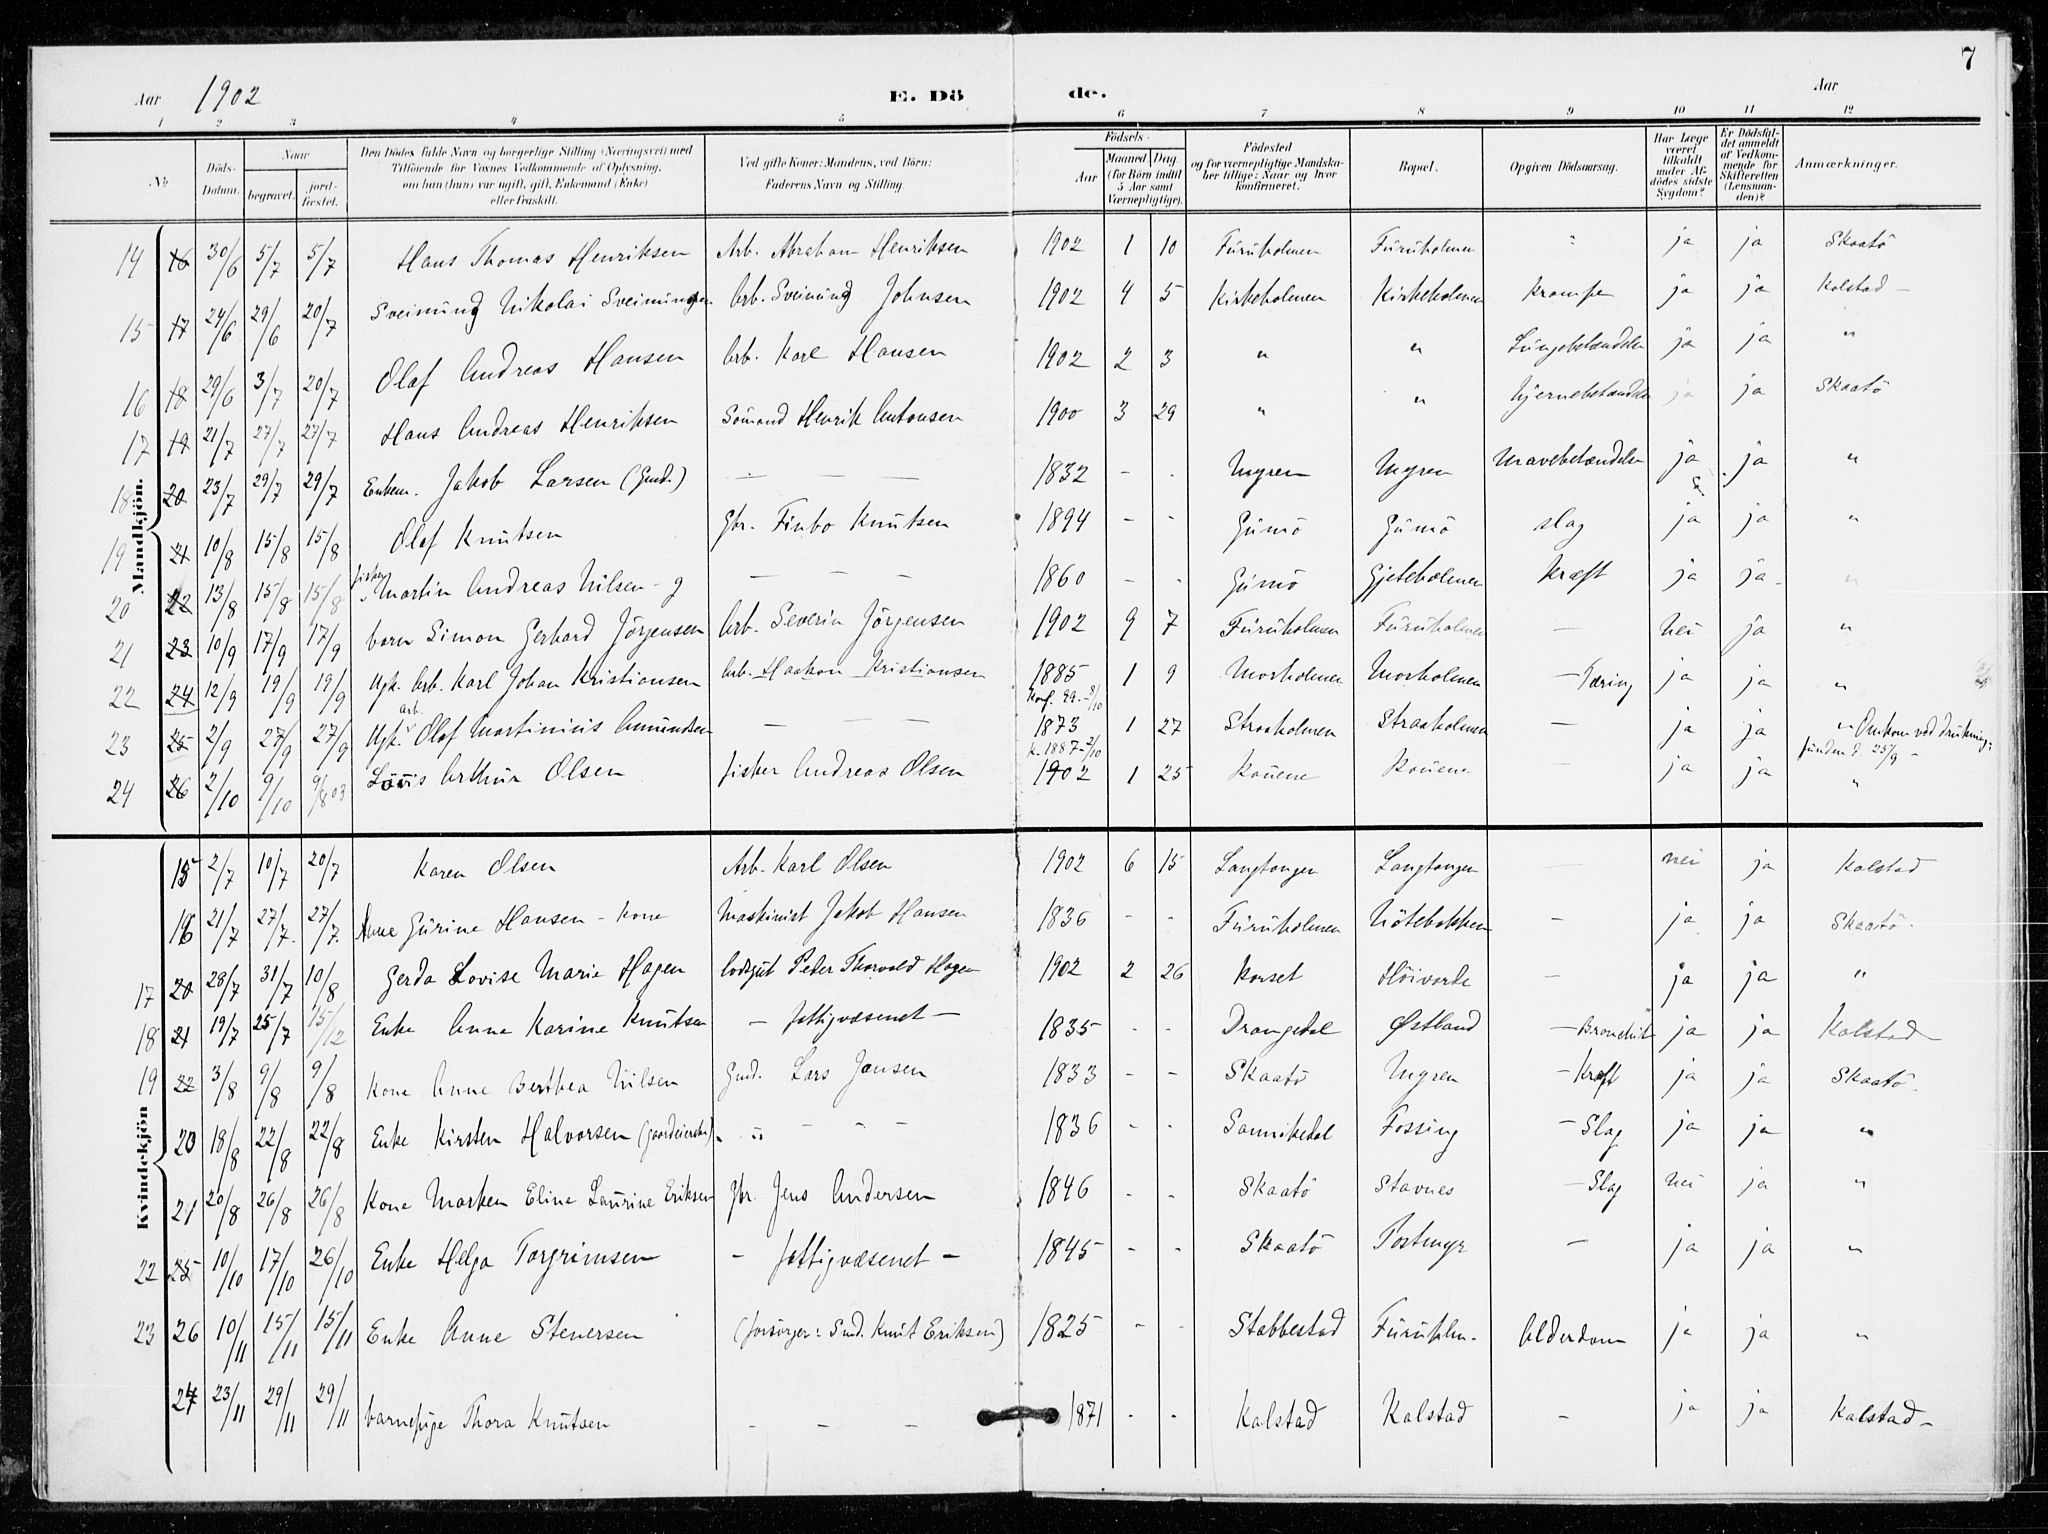 7
Aar 1902 E. Dö de. Aar
1 2 3 4 5 6 7 8 9 10 11 12
No Döds-Datum. Naar begravet. jord-fæstet. Den Dödes fulde Navn og borgerlige Stilling (Næringsvei) med Tilföiende for Voxnes Vedkommende af Oplysning, om han (hun) var ugift, gift, Enkemand (Enke) eller fraskilt. Ved gifte Koner: Mandens, ved Börn: Faderens Navn og Stilling. Födsels- Aar Maaned Dag. (for Börn indtil 5 Aar samt Værnepligtige). Födested og for værnepligtige Mandskaber tillige: Naar og hvor konfirmeret. Bopæl. Opgiven Dödsaarsag. Har Læge været tilkaldt under Afdödes sidste Sygdom? Er Dödsfaldet anmeldt af Vedkommende for Skifteretten (Lensmanden)? Anmærkninger.
Mandkjön.
14 16 30/6 5/7 5/7 Hans Thomas Henriksen Arb. Abraham Henriksen 1902 1 10 Furuholmen Furuholmen " ja ja Skaatö
15 17 24/6 29/6 20/7 Sveinung Nikolai Sveinungsen Arb. Sveinung Johnsen 1902 4 5 Kirkeholmen Kirkeholmen Krampe ja ja Kalstad -
16 18 29/6 3/7 20/7 Olaf Andreas Hansen Arb. Karl Hansen 1902 2 3 " " Lungebetændelse ja ja "
17 19 21/7 27/7 27/7 Hans Andreas Henriksen Sömand Henrik Antonsen 1900 3 29 " " Hjernebetændelse ja ja Skaatö
18 20 23/7 29/7 29/7 Enkem. Jakob Larsen (Gmd.) — — — 1832 - - Myren Myren Mavebetændelse ja ja "
19 21 10/8 15/8 15/8 Olaf Knutsen Gbr. Finbo Knutsen 1894 - - Gumö Gumö slag ja ja "
20 22 13/8 15/8 15/8 fisker Martin Andreas Nilsen - g — — — 1860 - - Gumö Gjeteholmen Kræft ja ja "
21 23 10/9 17/9 17/9 barn Simon Gerhard Jörgensen Arb. Severin Jörgensen 1902 9 7 Furuholmen Furuholmen — nei ja "
22 24 12/9 19/9 19/9 Ugk. Arb. Karl Johan Kristiansen Arb. Haakon Kristiansen 1885 1 9 Morholmen Morholmen — Tæring ja ja "
Konf. 99. - 8/10
23 25 2/9 27/9 27/9 Ugk. arb. Olaf Martinius Amundsen — — — 1873 1 27 Straaholmen Straaholmen — ja ja " Omkom ved drukning;
K. 1887 - 2/10 funden d. 25/9 -
24 26 2/10 9/10 9/8 03 Louis Arthur Olsen fisker Andreas Olsen 1902 1 25 Kouene Kouene — ja ja "
Kvindekjön
15 2/7 10/7 20/7 Karen Olsen Arb. Karl Olsen 1902 6 15 Langtangen Langtangen nei ja Kalstad
16 21/7 27/7 27/7 Anne Gurine Hansen - kone Maskinist Jakob Hansen 1836 - - Furuholmen Nötebakken — ja ja Skaatö
17 20 28/7 31/7 10/8 Gerda Lovise Marie Hagen lodsgut Peder Thorvald Hagen 1902 2 26 Korset Höivarde — ja ja "
18 21 19/7 25/7 15/12 Enke Anne Karine Knutsen — fattigvæsenet — 1835 - - Drangedal Østland — Bronchit ja ja Kalstad
19 22 3/8 9/8 9/8 Kone Anne Berthea Nilsen Gmd. Lars Jansen 1833 - - Skaatö Myren — Kræft ja ja Skaatö
20 18/8 22/8 22/8 Enke Kirsten Halvorsen (gaardeierske) " - - - 1836 - - Sannikedal Fossing — Slag ja ja "
21 20/8 26/8 26/8 Kone Maren Eline Laurine Eriksen Gbr. Jens Andersen 1846 - - Skaatö Stavnes — Slag nei ja "
22 25 10/10 17/10 26/10 Enke Helga Torgrimsen — fattigvæsenet — 1845 - - Skaatö Postmyr — ja ja "
23 26 10/11 15/11 15/11 Enke Anne Stenersen (forsörger: Gmd. Knut Eriksen) 1825 - - Stabbestad Furuhlm. Alderdom ja ja "
24 23/11 29/11 29/11 barnepige Thora Knutsen — — — 1871 - - Kalstad Kalstad — ja ja Kalstad -